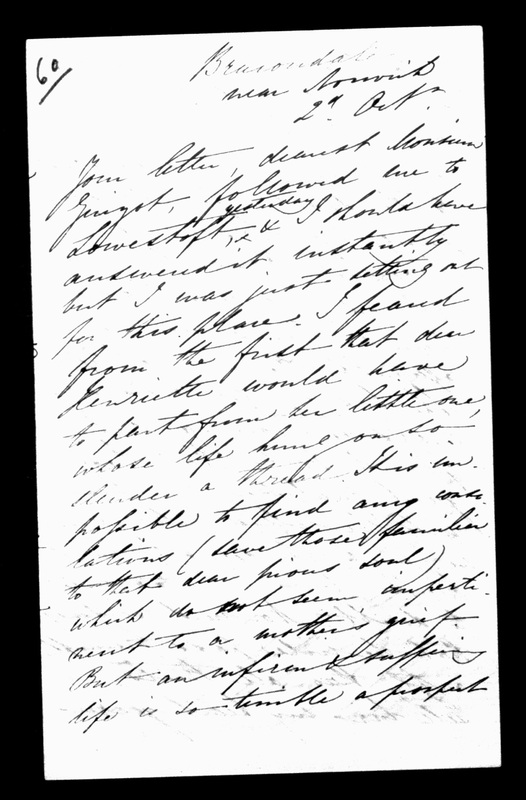 60/
Bracondale
near Norwich
2d Octr.
Your letter, dearest Monsieur
Guizot, followed me to
Lowestoft, yesterday & I should have
answered it instantly
but I was just setting out
for this place. I feared
from the first that dear
Henriette would have
to part from her little one,
whose life hung on so
slender a thread. It is im-
possible to find any conso-
lations (save those familiar
to that dear pious soul)
which do not seem imperti-
nent to a mother's grief
But an infirm & suffering
life is so terrible a prospect